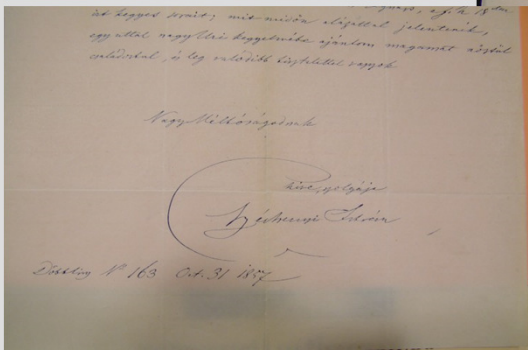 18dan
írt kegyes sorait; mit midőn alázattal jelentenék,
egyúttal nagy Úri kegyeibe ajánlom magamat
családostul, és leg valódibb tisztelettel vagyok
Nagy Méltóságodnak
szolgája
Széchenyi István
Döbling Nº 163 Oct. 31 1857